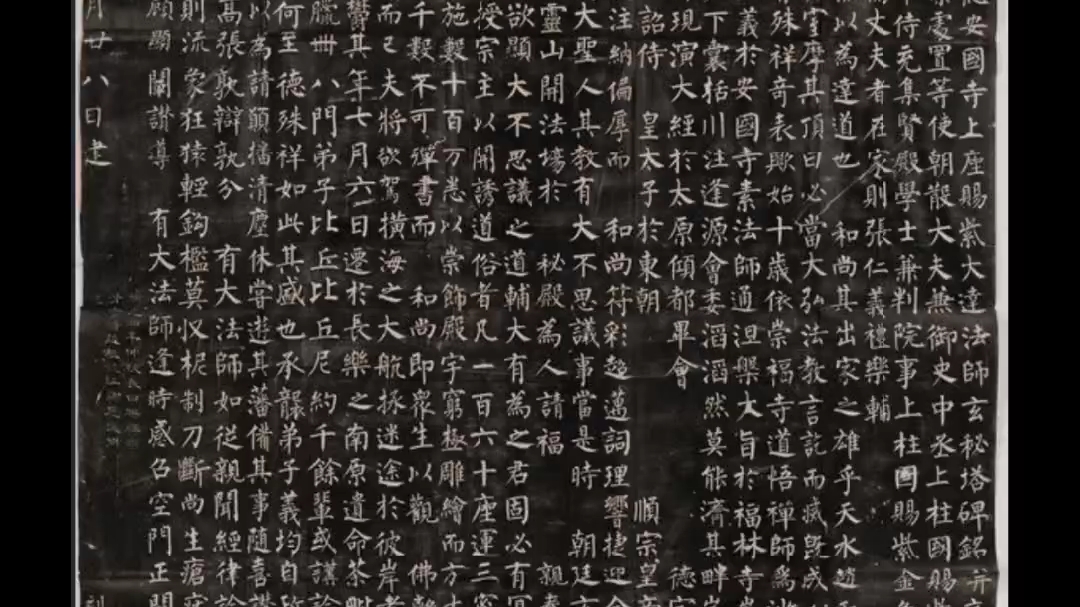 安國寺上座賜紫大達法師玄秘塔碑銘并
處置等使朝散大夫兼御史中丞上柱國賜
侍充集賢殿學士兼判院事上柱國賜紫金
為丈夫者在家則張仁義禮樂輔
以為達道也 和尚其出家之雄乎天水趙
室摩其頂曰必當大弘法教言訖而滅既成
殊祥奇表歟始十歲依崇福寺道悟禪師為沙
義於安國寺素法師通涅槃大旨於福林寺
下囊括川注逢源會委滔滔然莫能濟其畔岸
現演大經於太原傾都畢會 德宗
詔侍 皇太子於東朝 順宗皇帝
注納偏厚而 和尚符彩超邁詞理響捷迎合
大聖人其教有大不思議事當是時 朝廷方
靈山開法場於 秘殿為人請福 親奉
欲顯大不思議之道輔大有為之君固必有冥
授宗主以開誘道俗者凡一百六十座運三密
施數十百万悉以崇飾殿宇窮極雕繪而方丈
千數不可殫書而 和尚即眾生以觀 佛離
而已夫將欲駕橫海之大航拯迷途於彼岸者
鬱其年七月六日遷於長樂之南原遺命荼毗
臘卌八門弟子比丘比丘尼約千餘輩或講論
何至德殊祥如此其盛也承襲弟子義均自政
以為請願播清塵休嘗遊其藩備其事隨喜讚
高張歎辯孰分 有大法師如從親聞經律論
則流象狂猿輕鉤檻莫收柅制刀斷尚生瘡疣
願顯 闡讚導 有大法師逢時感召空門正闢
月廿八日建 刻